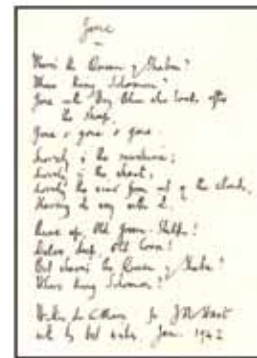 Gone
Where's the Queen of Sheba?
Where King Solomon?
Gone with Boy Blue who looks after
the sheep,
Gone & gone & gone.
Lovely is the sunshine;
Lovely is the wheat;
Lovely the wind from out of the clouds
Having its way with it.
Rise up, Old Green-Stalks!
Delve deep, Old Corn!
But where's the Queen of Sheba?
Where King Solomon?
Walter de la Mare for
with best wishes Jan. 1942